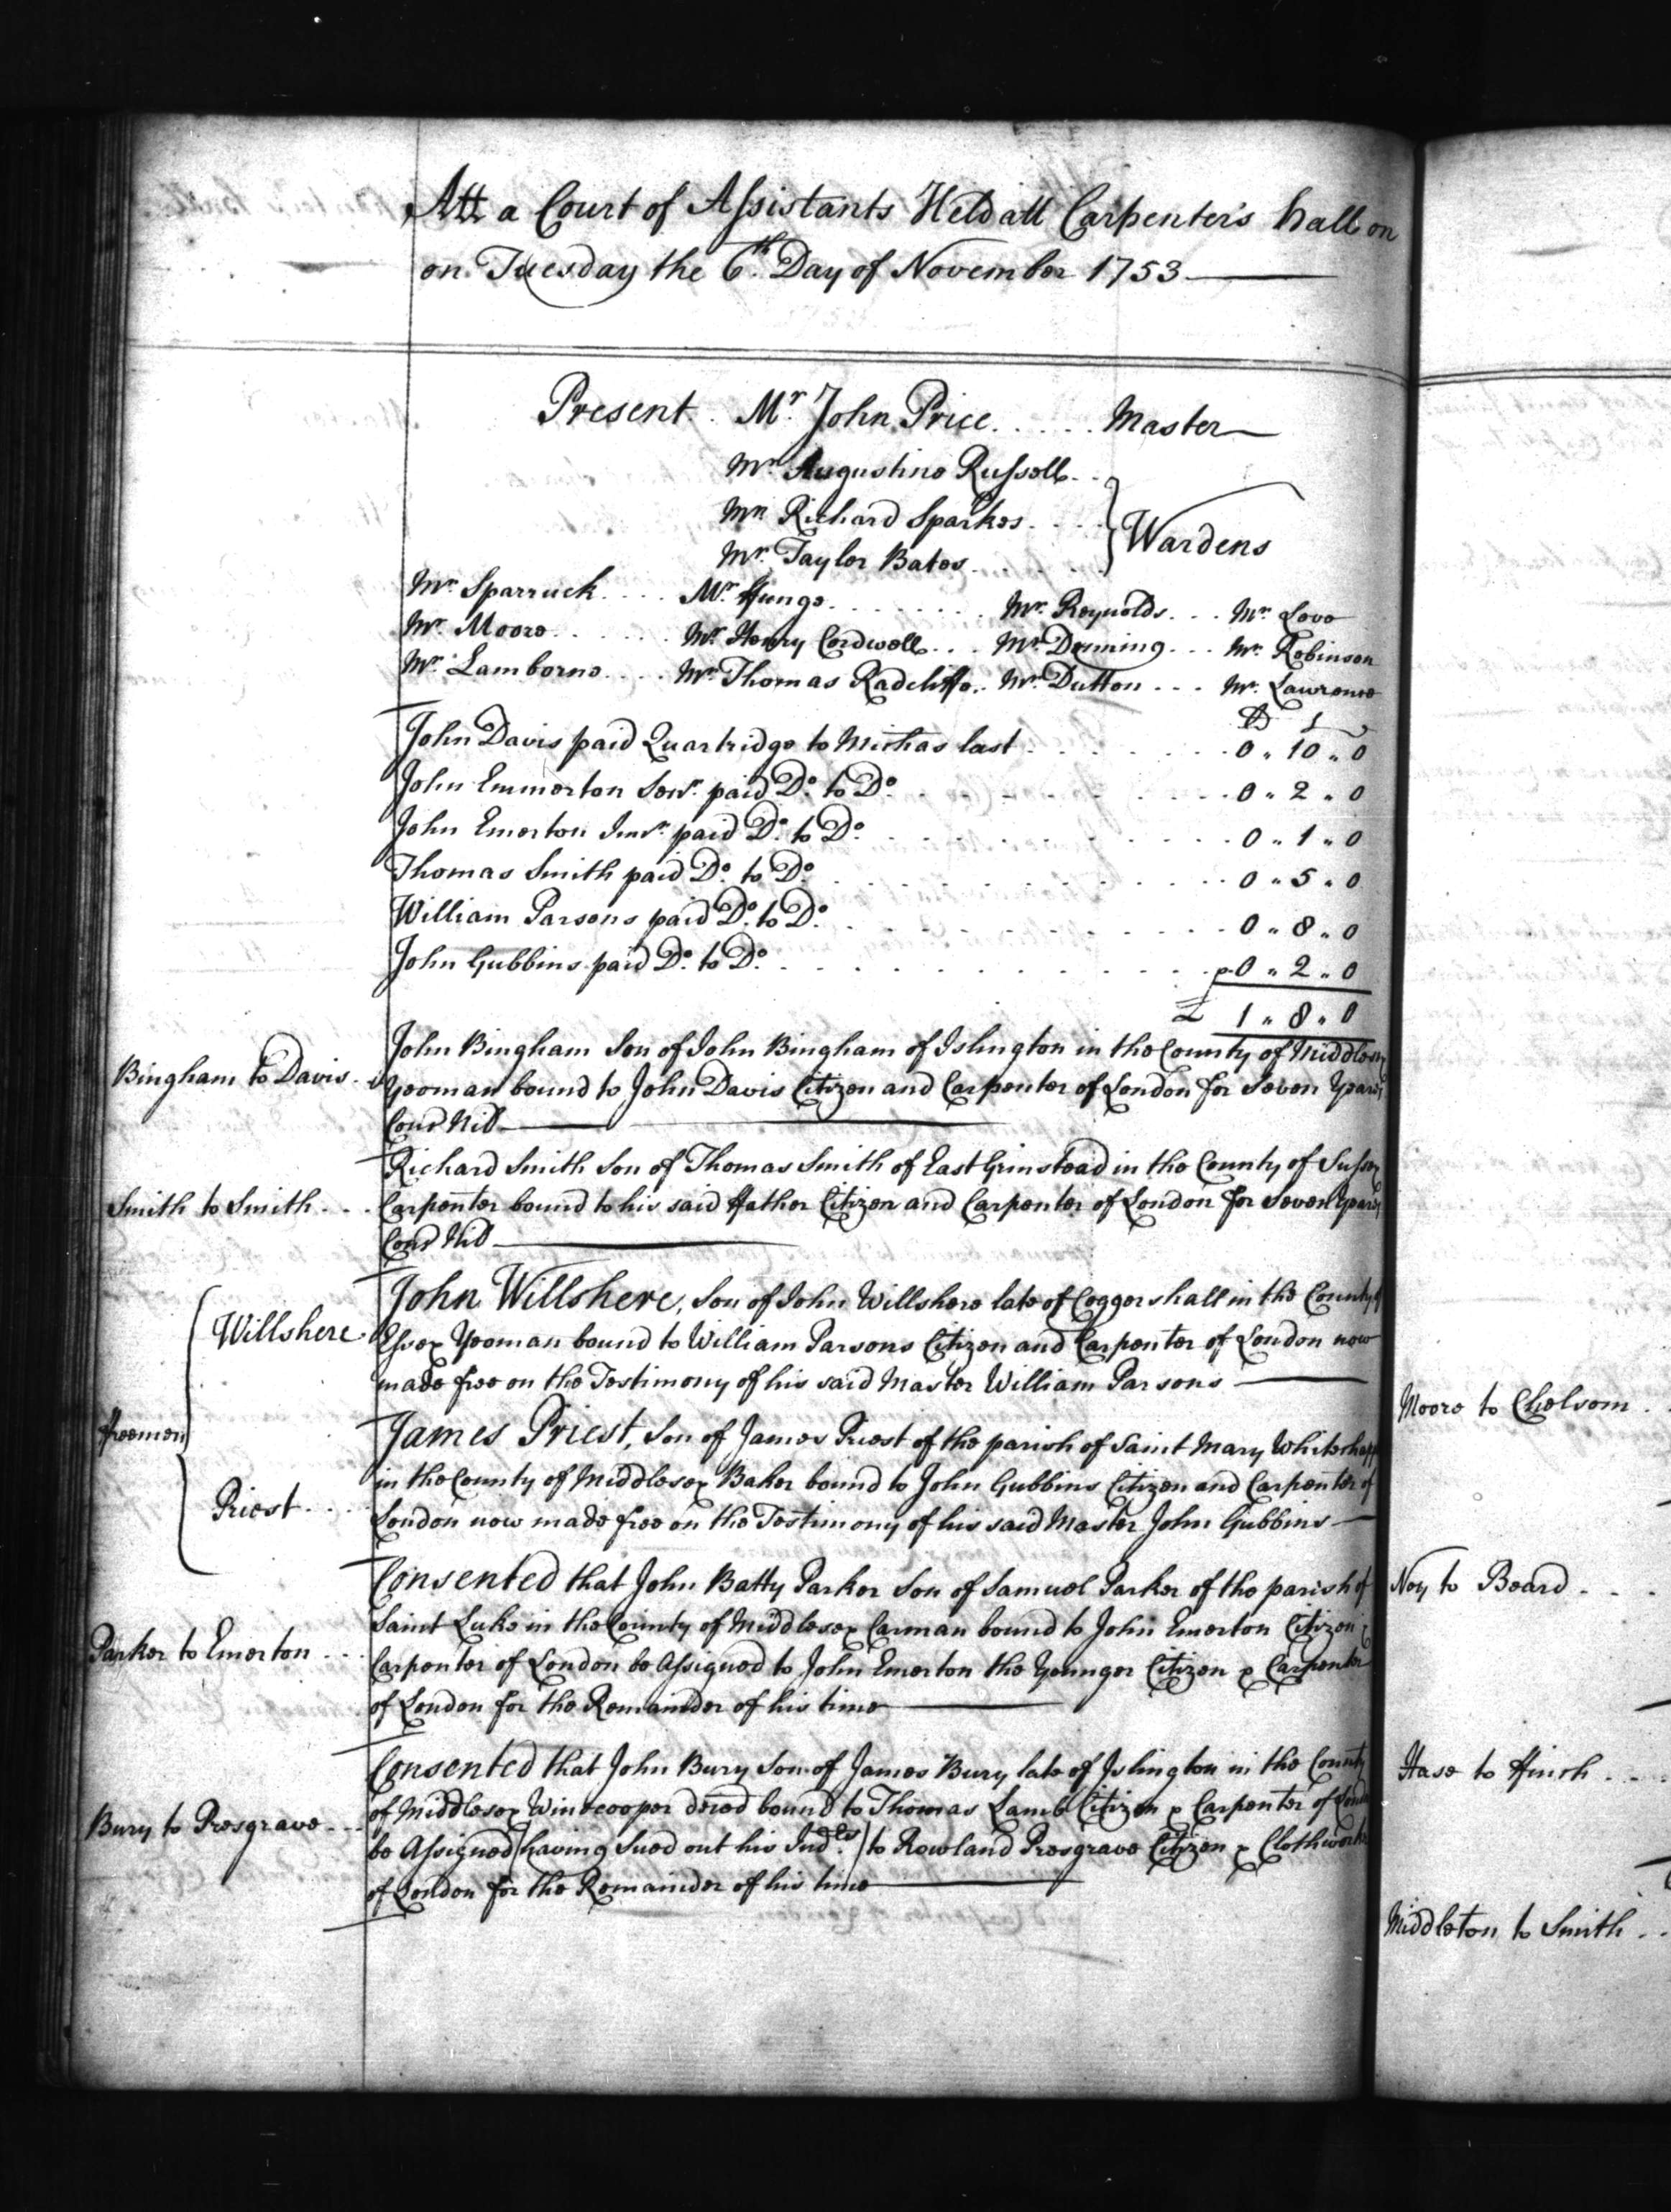 Att a Court of Assistants Held att Carpenters hall on
on Tuesday the 6th Day of November 1753
Present . . Mr John Price . . . . . Master
Mr Augustine Russell . .
Mr Richard Sparkes . . . . Wardens
Mr Taylor Bates . . . . .
Mr Sparruck . . . . Mr . . . . . . . Mr Reynolds . . . Mr Love
Mr Moore . . . . . . Mr Henry Cordwell . . . Mr Deming . . . Mr Robinson
Mr Lamborne . . . . Mr Thomas Radcliffe . . Mr Dutton . . . Mr Lawrence
John Davis paid Quartridge to Michas last . . . . . . . . 0 " 10 " 0
John Emmerton Senr. paid Do. to Do. . . . . . . . 0 " 2 " 0
John Emerton Junr. paid Do. to Do. . . . . . . . 0 " 1 " 0
Thomas Smith paid Do. to Do. . . . . . . . 0 " 5 " 0
William Parsons paid Do. to Do. . . . . . . . 0 " 8 " 0
John Gubbins paid Do. to Do. . . . . . . . 0 " 2 " 0
£ 1 " 8 " 0
Bingham to Davis . .
John Bingham Son of John Bingham of Islington in the County of Middlesex
Yeoman bound to John Davis Citizen and Carpenter of London for Seven Years
Cons Nil
Smith to Smith . . .
Richard Smith Son of Thomas Smith of East Grinstead in the County of Sussex
Carpenter bound to his said ffather Citizen and Carpenter of London for Seven Years
Cons Nil
Freemen
Willshere
John Willshere, Son of John Willshere late of Coggershall in the County of
Essex Yeoman bound to William Parsons Citizen and Carpenter of London now
made free on the Testimony of his said Master William Parsons
Priest . . .
James Priest, Son of James Priest of the parish of Saint Mary Whitechapp
in the County of Middlesex Baker bound to John Gubbins Citizen and Carpenter of
London now made free on the Testimony of his said Master John Gubbins
Parker to Emerton . . .
Consented that John Batty Parker Son of Samuel Parker of the parish of
Saint Luke in the County of Middlesex Carman bound to John Emerton Citizen &
Carpenter of London be Assigned to John Emerton the Younger Citizen & Carpenter
of London for the Remainder of his time
Bury to Presgrave . . .
Consented that John Bury Son of James Bury late of Islington in the County
of Middlesex Winecooper deced bound to Thomas Lamb Citizen & Carpenter of Lond
be Assigned (having Sued out his Indres) to Rowland Presgrave Citizen & Clothworker
of London for the Remainder of his time
Moore to Chelsom . .
Noy to Beard . . .
Hase to ffinch . . .
Middleton to Smith . .